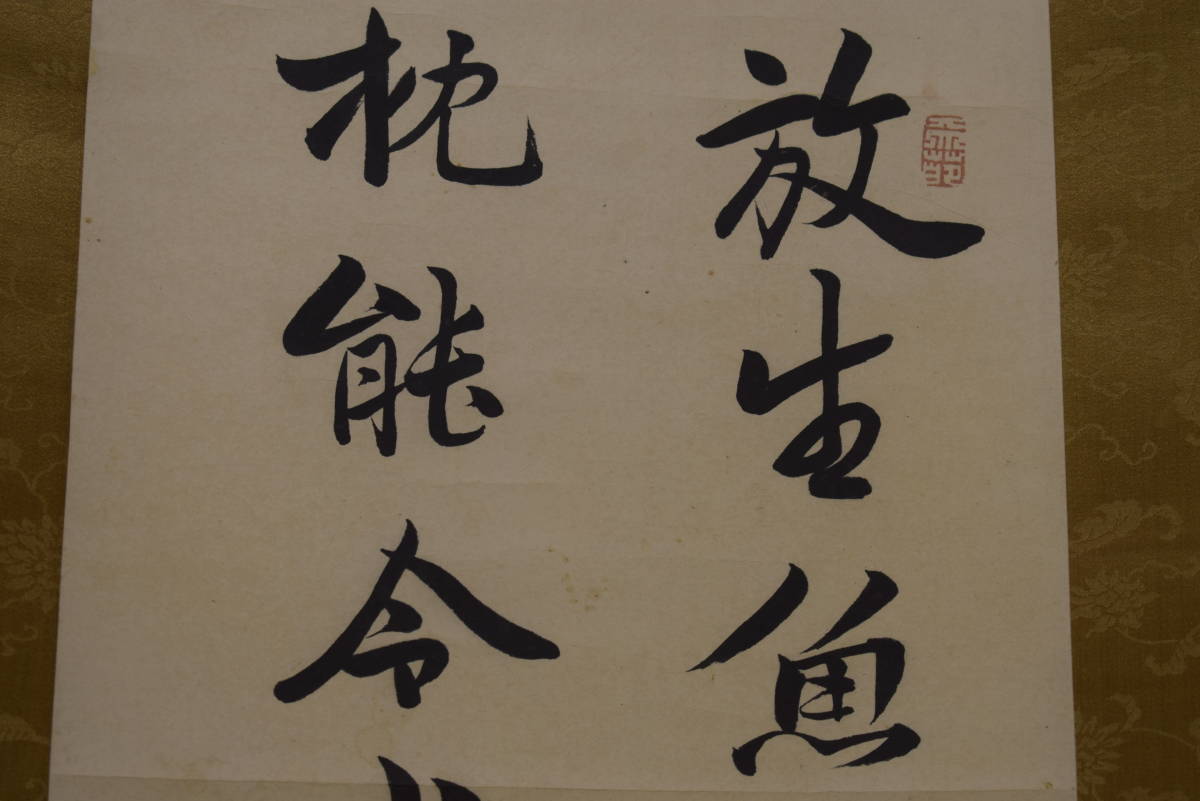 放生魚
枕能令